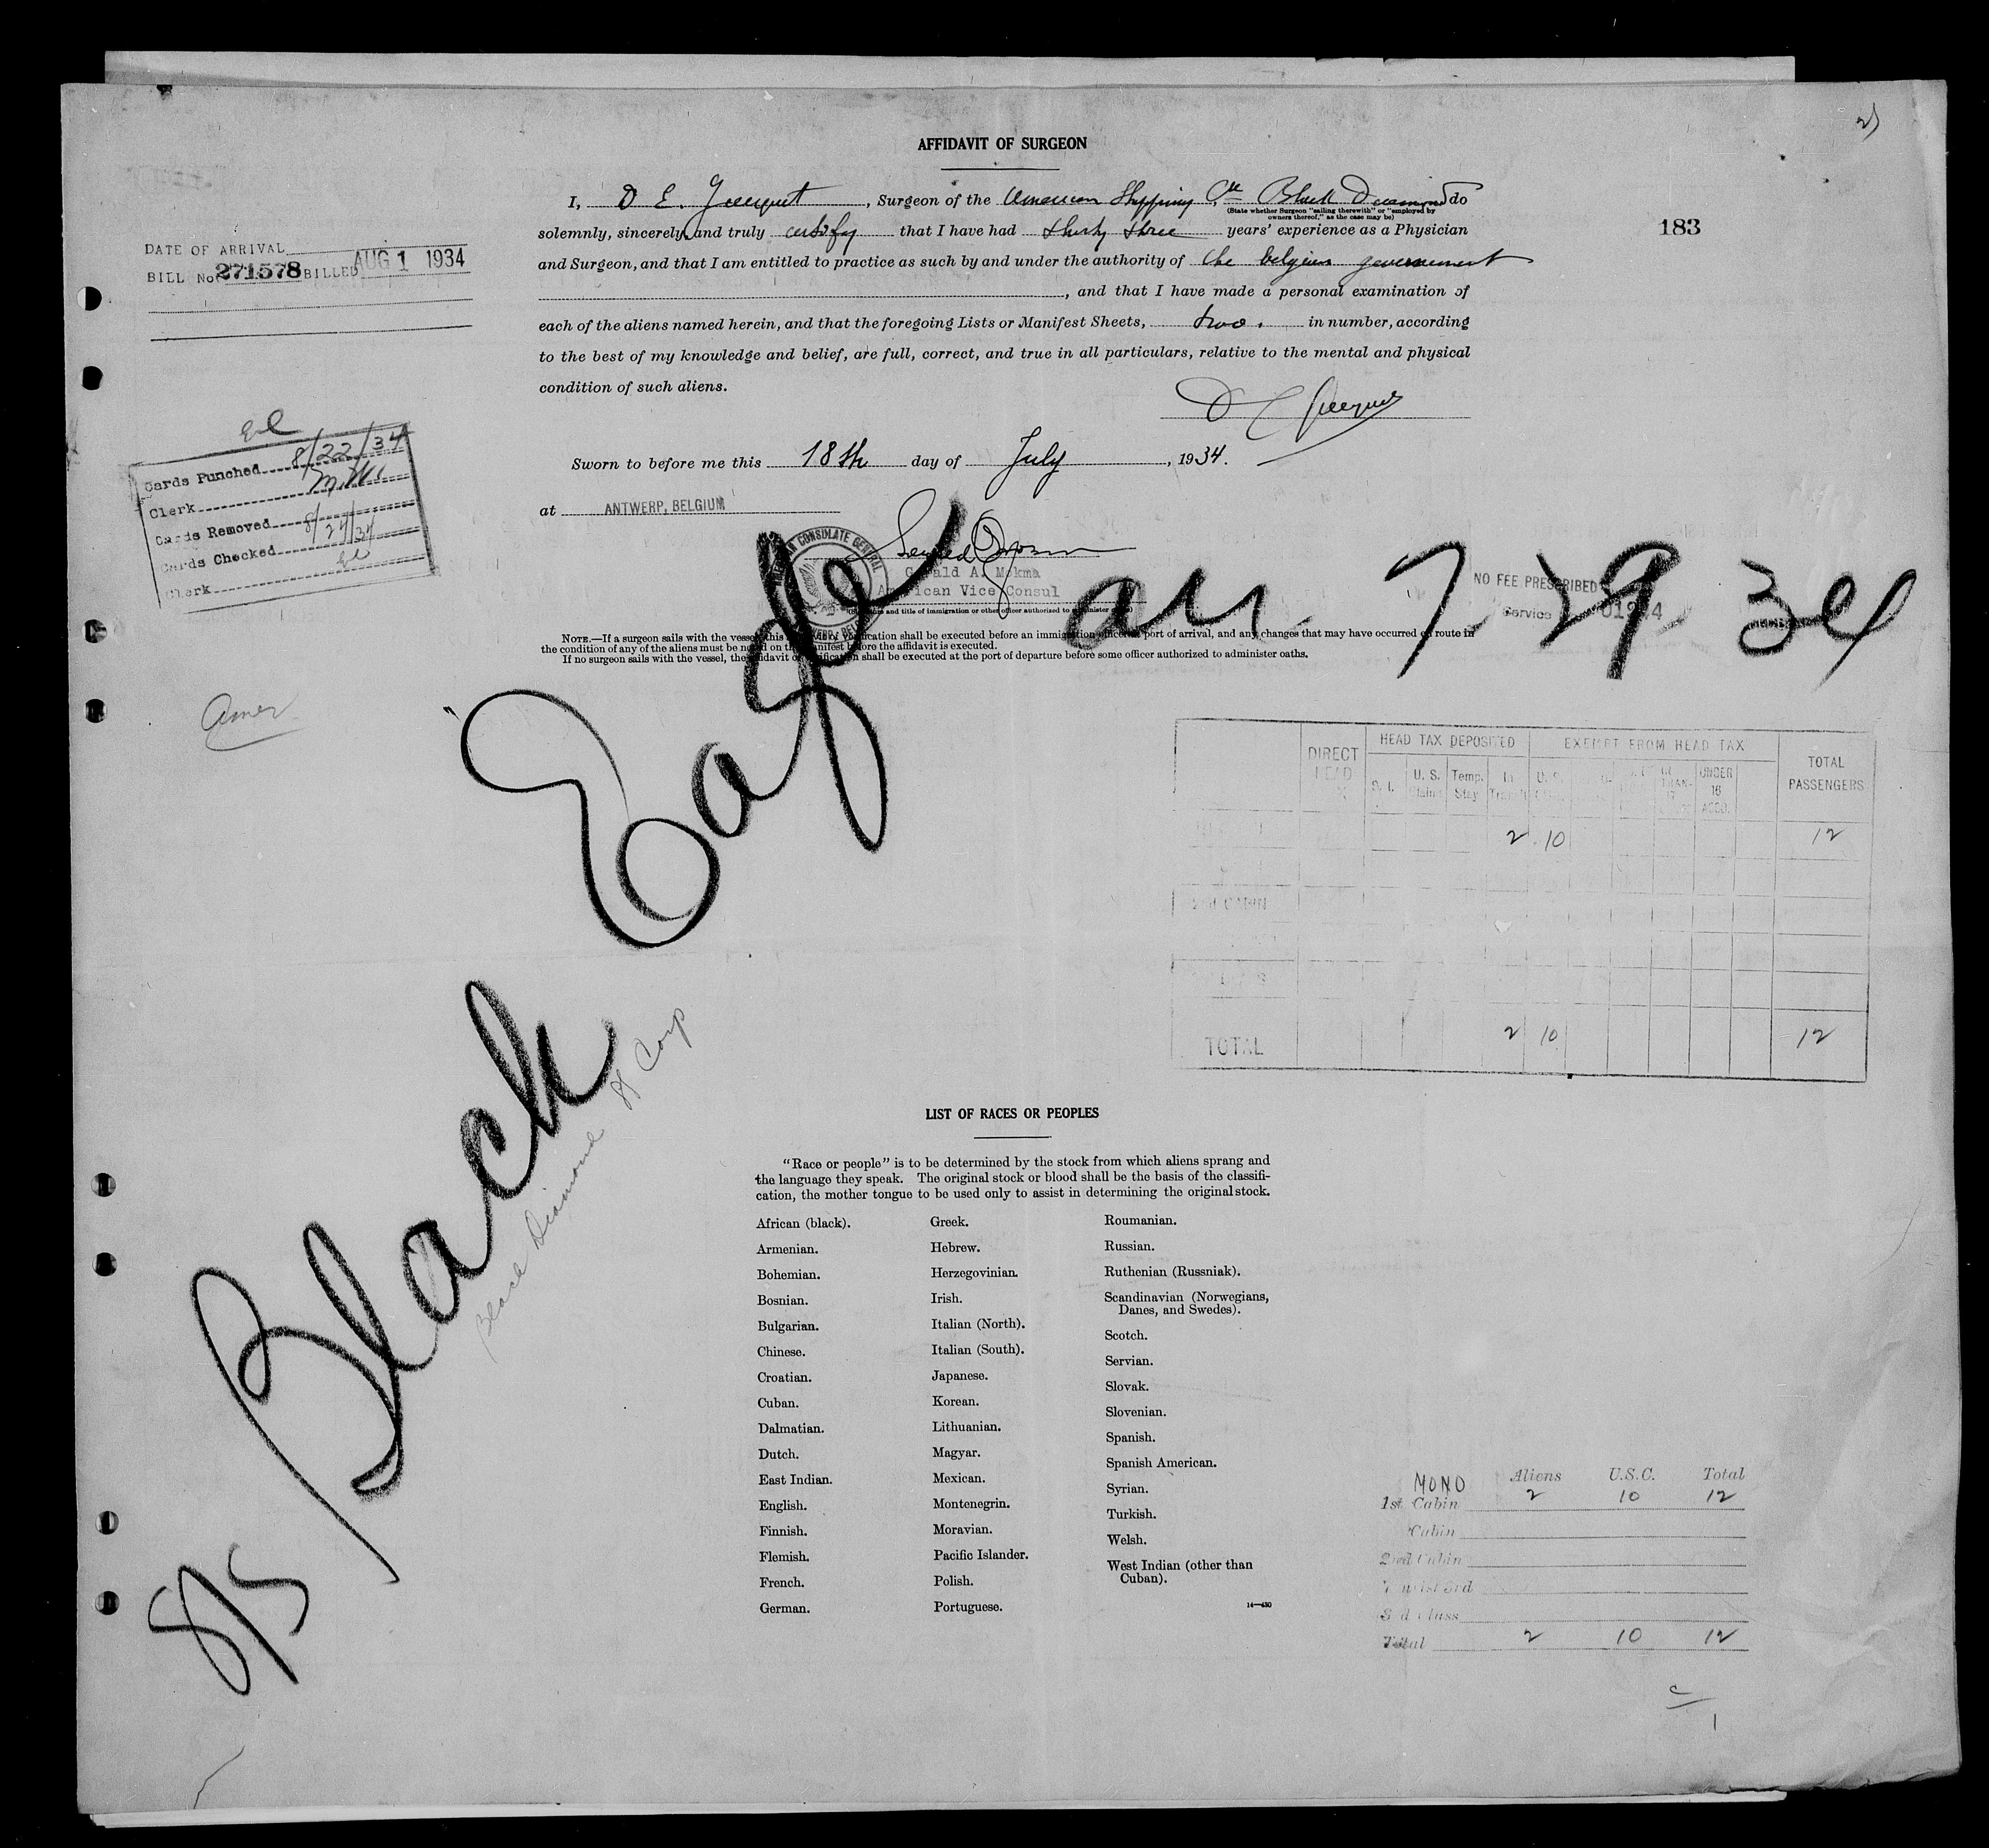 AFFIDAVIT OF SURGEON
I, D E. , Surgeon of the American Shipping Black Diamond do
(State whether Surgeon "sailing therewith" or "employed by
owners thereof," as the case may be)
solemnly, sincerely, and truly certify that I have had thirty three years' experience as a Physician
and Surgeon, and that I am entitled to practice as such by and under the authority of the belgian government
, and that I have made a personal examination of
each of the aliens named herein, and that the foregoing Lists or Manifest Sheets, two. in number, according
to the best of my knowledge and belief, are full, correct, and true in all particulars, relative to the mental and physical
condition of such aliens.
Sworn to before me this 18th day of July, 1934.
at ANTWERP, BELGIUM
CONSULATE GENERAL
Gerald A. Mokma
American Vice Consul
and title of immigration or other officer authorized to administer
NOTE.—If a surgeon sails with the vessel, this shall be executed before an immigration officer port of arrival, and any changes that may have occurred en route in
the condition of any of the aliens must be noted on the manifest before the affidavit is executed.
If no surgeon sails with the vessel, the affidavit shall be executed at the port of departure before some officer authorized to administer oaths.
183
DATE OF ARRIVAL
BILL No. 271578 BILLED AUG 1 1934
Cards Punched 8/22/34
Clerk
Cards Removed 8/24/34
Cards Checked
Clerk
NO FEE PRESCRIBED
Service
S/S Black Eagle arr 7 29 34
Black Diamond SS Corp
Amer
DIRECT HEAD
HEAD TAX DEPOSITED
EXEMPT FROM HEAD TAX
TOTAL PASSENGERS
S. I.
U. S. Claims
Temp. Stay
In Transit
UNDER 16 ACCO.
2 10 12
2nd CABIN
TOTAL 2 10 12
LIST OF RACES OR PEOPLES
"Race or people" is to be determined by the stock from which aliens sprang and
the language they speak. The original stock or blood shall be the basis of the classifi-
cation, the mother tongue to be used only to assist in determining the original stock.
African (black).
Armenian.
Bohemian.
Bosnian.
Bulgarian.
Chinese.
Croatian.
Cuban.
Dalmatian.
Dutch.
East Indian.
English.
Finnish.
Flemish.
French.
German.
Greek.
Hebrew.
Herzegovinian.
Irish.
Italian (North).
Italian (South).
Japanese.
Korean.
Lithuanian.
Magyar.
Mexican.
Montenegrin.
Moravian.
Pacific Islander.
Polish.
Portuguese.
Roumanian.
Russian.
Ruthenian (Russniak).
Scandinavian (Norwegians,
Danes, and Swedes).
Scotch.
Servian.
Slovak.
Slovenian.
Spanish.
Spanish American.
Syrian.
Turkish.
Welsh.
West Indian (other than
Cuban).
14—430
MONO Aliens U.S.C. Total
1st Cabin 2 10 12
Cabin
2nd Cabin
Tourist 3rd
3rd Class
Total 2 10 12